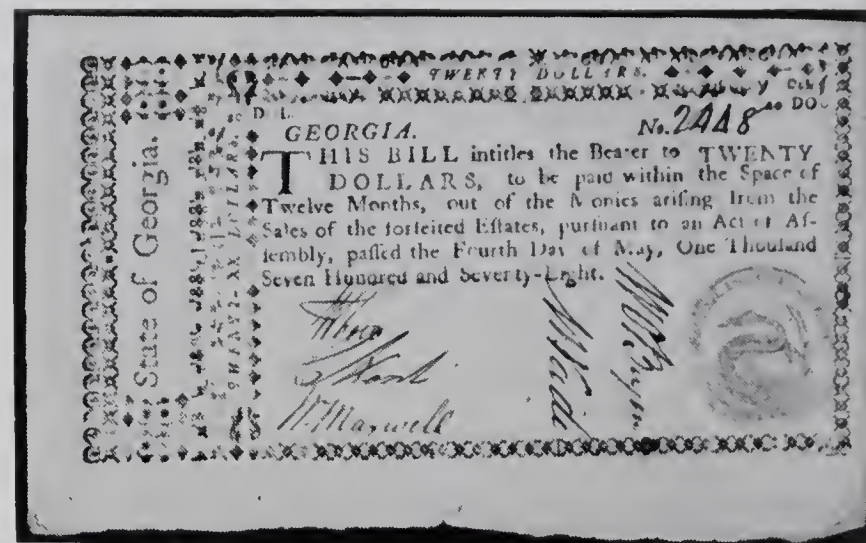 TWENTY DOLLARS.
GEORGIA.
No. 2448
THIS BILL intitles the Bearer to TWENTY
DOLLARS, to be paid within the Space of
Twelve Months, out of the Monies ariſing from the
Sales of the forfeited Eſtates, purſuant to an Act of Aſ-
ſembly, paſſed the Fourth Day of May, One Thouſand
Seven Hundred and Seventy-Eight.
State of Georgia.
Wood
W. Maxwell